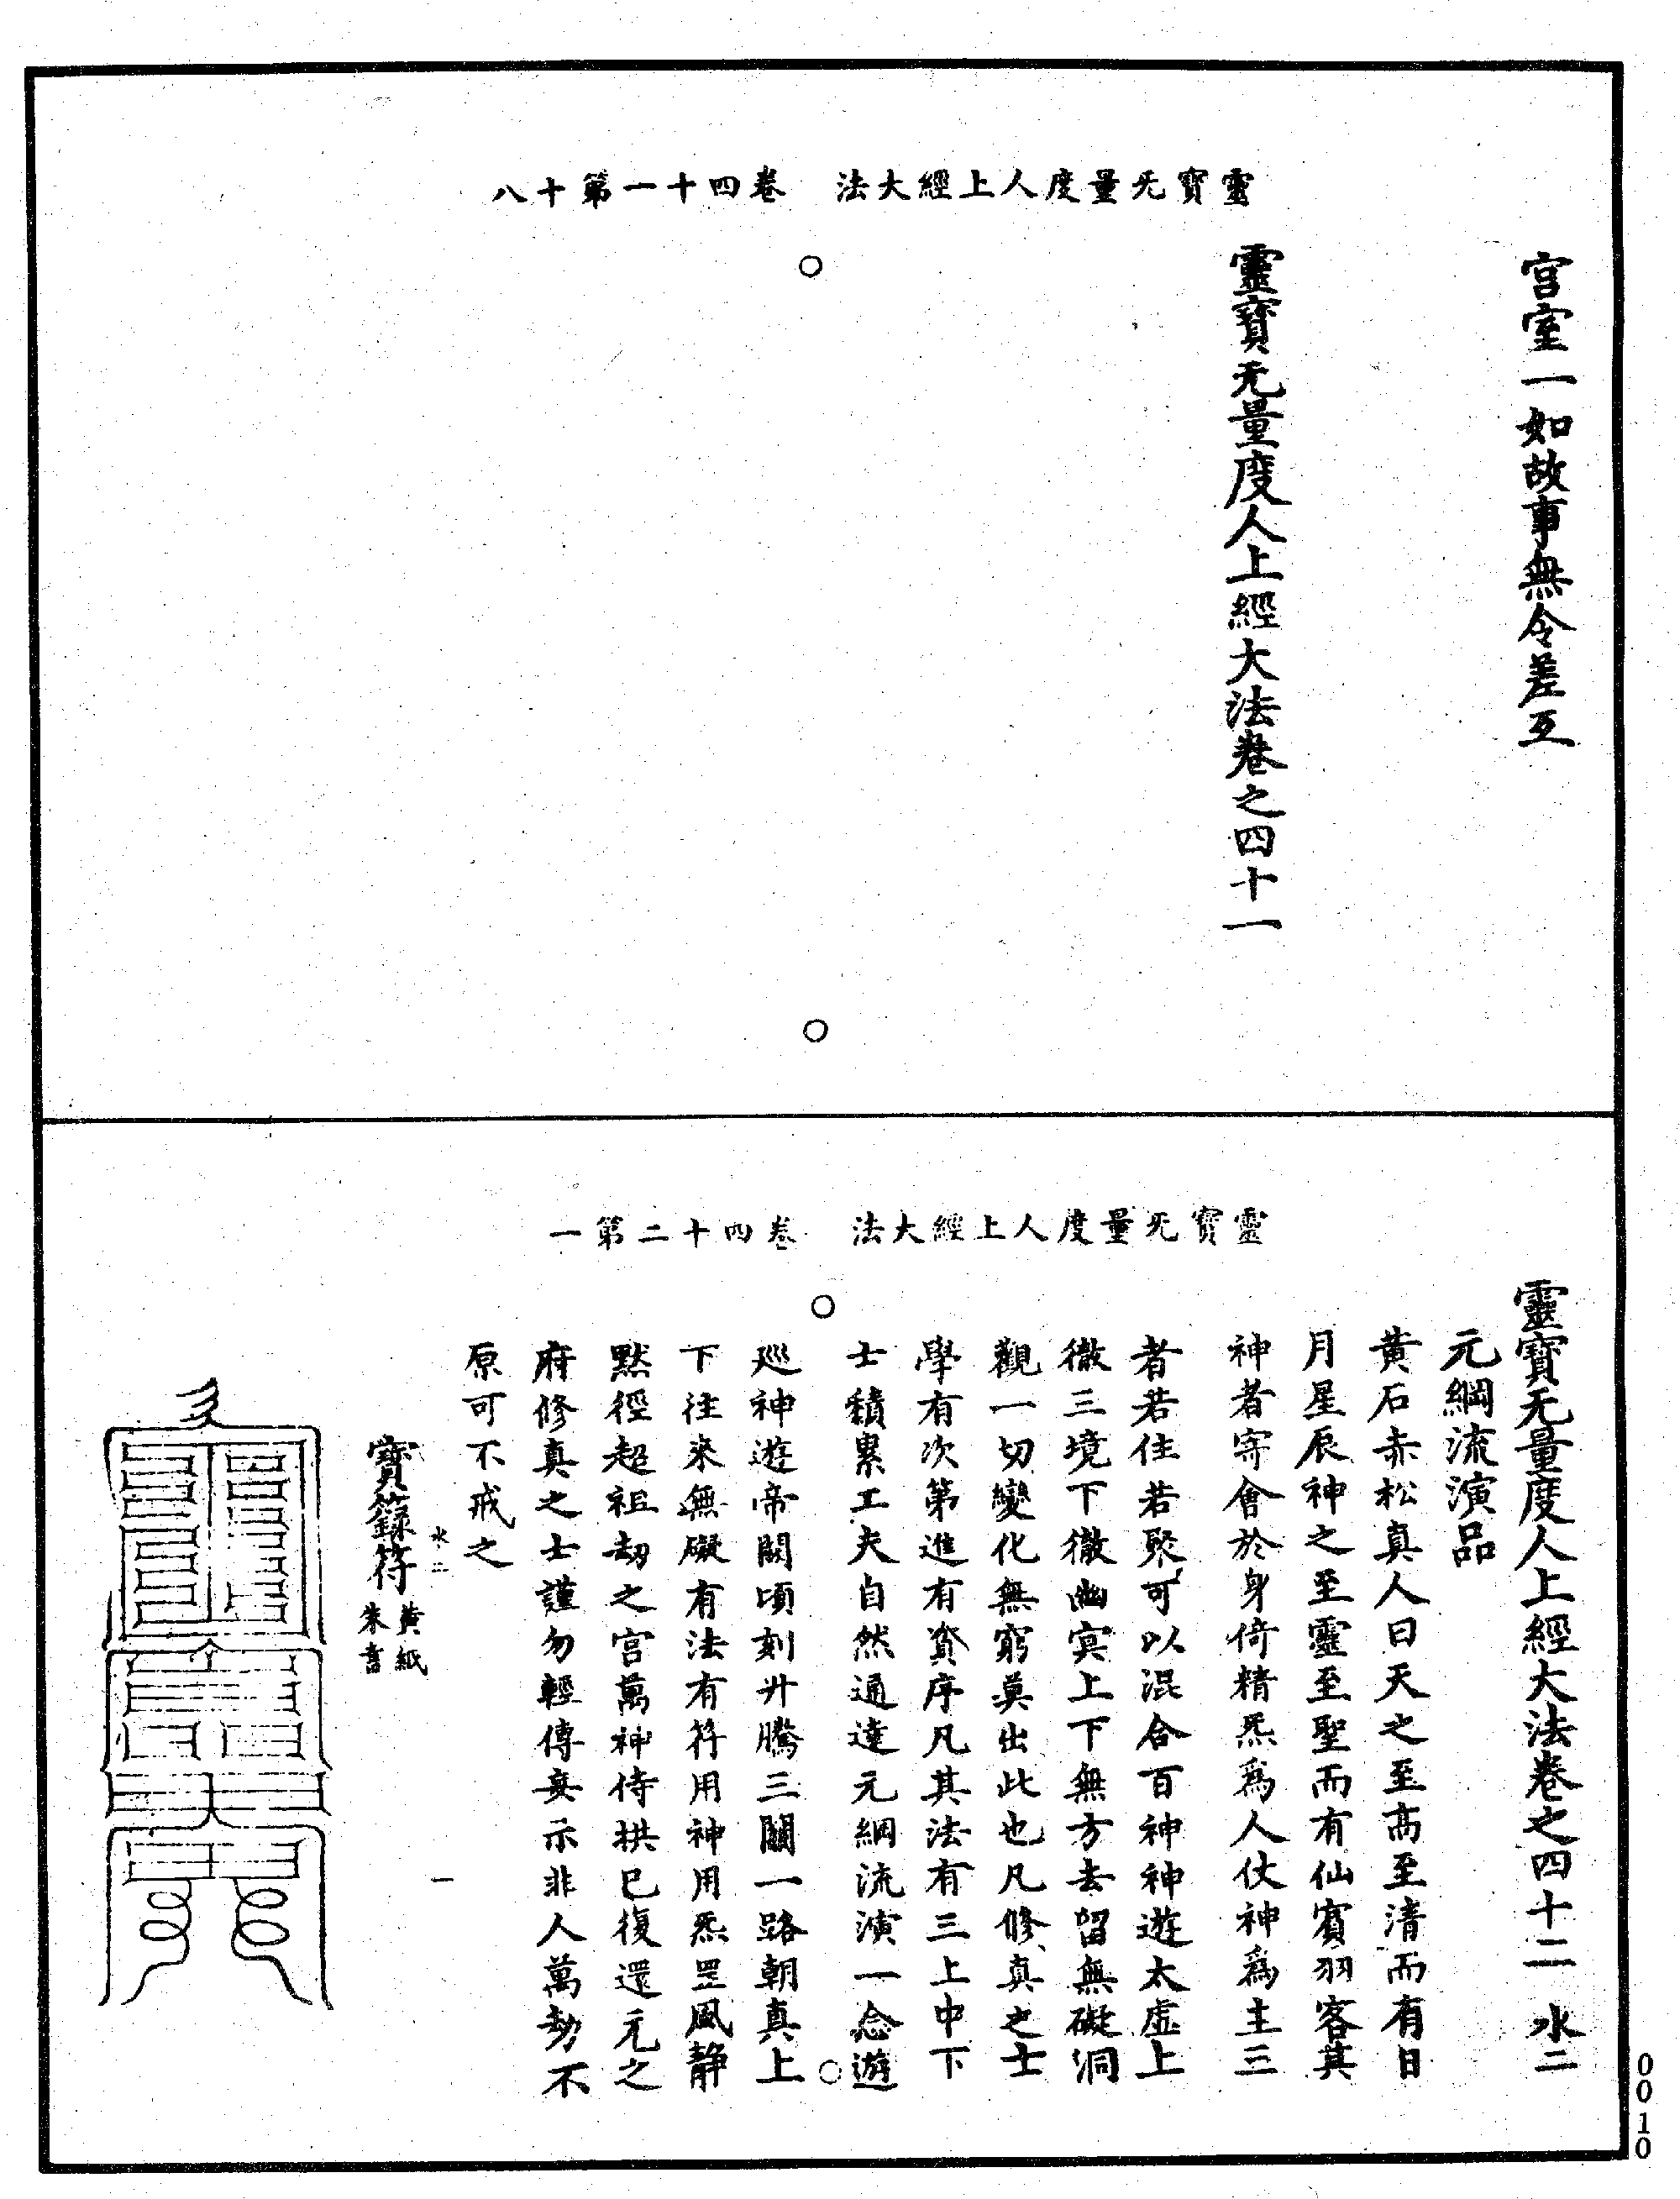 靈寶旡量度人上經大法　卷四十一第十八
宫室一如故事無令差互
靈寶无量度人上經大法卷之四十一
靈寶旡量度人上經大法　卷四十二第一
靈寶无量度人上經大法卷之四十二　水二
元綱流演品
黃石赤松真人曰天之至高至清而有日
月星辰神之至靈至聖而有仙賓羽客其
神者寄會於身倚精炁爲人仗神爲主三
者若住若聚可以混合百神神遊太虛上
徹三境下徹幽冥上下無方去留無礙洞
觀一切變化無窮莫出此也凡修真之士
學有次第進有資序凡其法有三上中下
士積累工夫自然通達元綱流演一念遊
巡神遊帝闕頃刻升騰三關一路朝真上
下往來無礙有法有符用神用炁罡風静
默徑超祖劫之宫萬神侍拱已復還元之
府修真之士謹勿輕傳妄示非人萬劫不
原可不戒之
水二　一
寶籙符
黃紙
朱書
0010